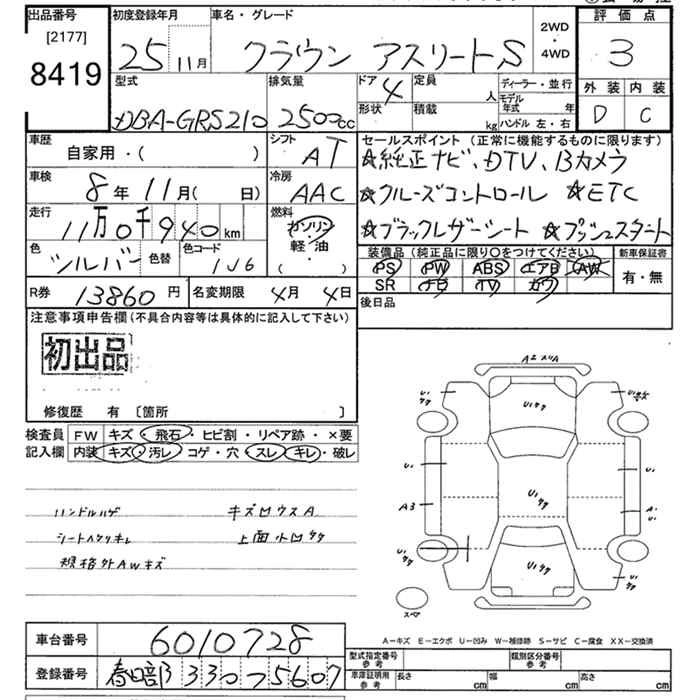 出品番号
[2177]
8419
初度登録年月
25 11月
車名・グレード
クラウン アスリートS
2WD
・
4WD
評価点
3
外装 内装
D C
型式
DBA-GRS210
排気量
2500cc
ドア 4
形状
定員
人
積載
kg
ディーラー・並行
モデル
年式 年
ハンドル 左・右
車歴
自家用・( )
シフト
AT
車検
8年11月( 日)
冷房
AAC
走行
11万0千940km
燃料
ガソリン
・
軽・油
( )
色
シルバー
色替
色コード
1J6
R券 13860円
名変期限 4月4日
セールスポイント(正常に機能するものに限ります)
☆純正ナビ、DTV、Bカメラ
☆クルーズコントロール ☆ETC
☆ブラックレザーシート ☆プッシュスタート
装備品(純正品に限り○をつけてください)
PS PW ABS エアB AW
SR ナビ TV カワ
新車保証書
有・無
後日品
注意事項申告欄(不具合内容等は具体的に記入して下さい)
初出品
修復歴 有〔箇所 〕
検査員
記入欄
FW キズ・飛石・ヒビ割・リペア跡・×要
内装 キズ・汚レ・コゲ・穴・スレ・キレ・破レ
ハンドルハゲ キズロウスA
シートヘタリキレ 上面小口タタ
規格外AWキズ
A2 スリA
U1
タタ
U1タタ
U1
U1
A3
U1タタ
A1
U1
U1
タタ
U1タタ
U1
タタ
スペア
A−キズ E−エクボ U−凹み W−補修跡 S−サビ C−腐食 XX−交換済
車台番号 6010728
登録番号 春日部 330 ツ 5607
型式指定番号
参考
類別区分番号
参考
車庫証明用
参考
長さ cm
幅 cm
高さ cm